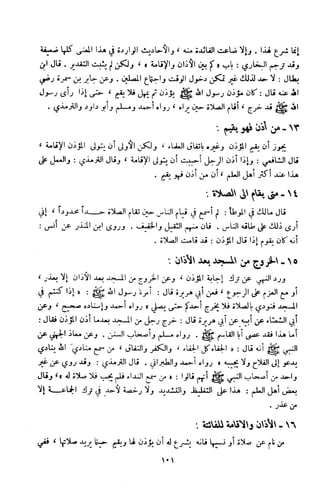 إنما شرع لهذا . وإلا ضاعت الفائدة منه ، والأحاديث الواردة في هذا المعنى كلها ضعيفة
وقد ترجم البخاري : باب « كم بين الأذان والإقامة » ، ولكن لم يثبت التقدير . قال ابن
بطال : لا حد لذلك غير تمكن دخول الوقت واجتماع المصلين . وعن جابر بن سمرة رضي
الله عنه قال : كان مؤذن رسول الله ﷺ يؤذن ثم يمهل فلا يقيم ، حتى إذا رأى رسول
الله ﷺ قد خرج ، أقام الصلاة حين يراه ، رواه أحمد ومسلم وأبو داود والترمذي .
١٣ - من أذن فهو يقيم :
يجوز أن يقيم المؤذن وغيره باتفاق العلماء ، ولكن الأولى أن يتولى المؤذن الإقامة ،
قال الشافعي : وإذا أذن الرجل أحببت أن يتولى الإقامة ، وقال الترمذي : والعمل على
هذا عند أكثر أهل العلم ، أن من أذن فهو يقيم .
١٤ - متى يقام الى الصلاة :
قال مالك في الموطأ : لم أسمع في قيام الناس حين تقام الصلاة حداً محدوداً ، إني
أرى ذلك على طاقة الناس . فإن منهم الثقيل والخفيف . وروى ابن المنذر عن أنس :
أنه كان يقوم إذا قال المؤذن : قد قامت الصلاة .
١٥ - الخروج من المسجد بعد الأذان :
ورد النهي عن ترك إجابة المؤذن ، وعن الخروج من المسجد بعد الأذان إلا بعذر ،
أو مع العزم على الرجوع ، فعن أبي هريرة قال : أمرنا رسول الله ﷺ : « إذا كنتم في
المسجد فنودي بالصلاة فلا يخرج أحدكم حتى يصلي » رواه أحمد وإسناده صحيح ، وعن
أبي الشعثاء عن أبيه عن أبي هريرة قال : خرج رجل من المسجد بعدما أذن المؤذن فقال :
أما هذا فقد عصى أبا القاسم ﷺ . رواه مسلم وأصحاب السنن . وعن معاذ الجهني عن
النبي ﷺ أنه قال : « الجفاء كل الجفاء ، والكفر والنفاق ، من سمع منادي الله ينادي
يدعو إلى الفلاح ولا يجيبه » رواه أحمد والطبراني . قال الترمذي : وقد روي عن غير
واحد من أصحاب النبي ﷺ أنهم قالوا : « من سمع النداء فلم يجب فلا صلاة له » ، وقال
بعض أهل العلم : هذا على التغليظ والتشديد ولا رخصة لأحد في ترك الجماعة إلا
من عذر .
١٦ - الأذان والاقامة للفائتة :
من نام عن صلاة أو نسيها فإنه يشرع له أن يؤذن لها ويقيم حينما يريد صلاتها ، ففي
١٠١